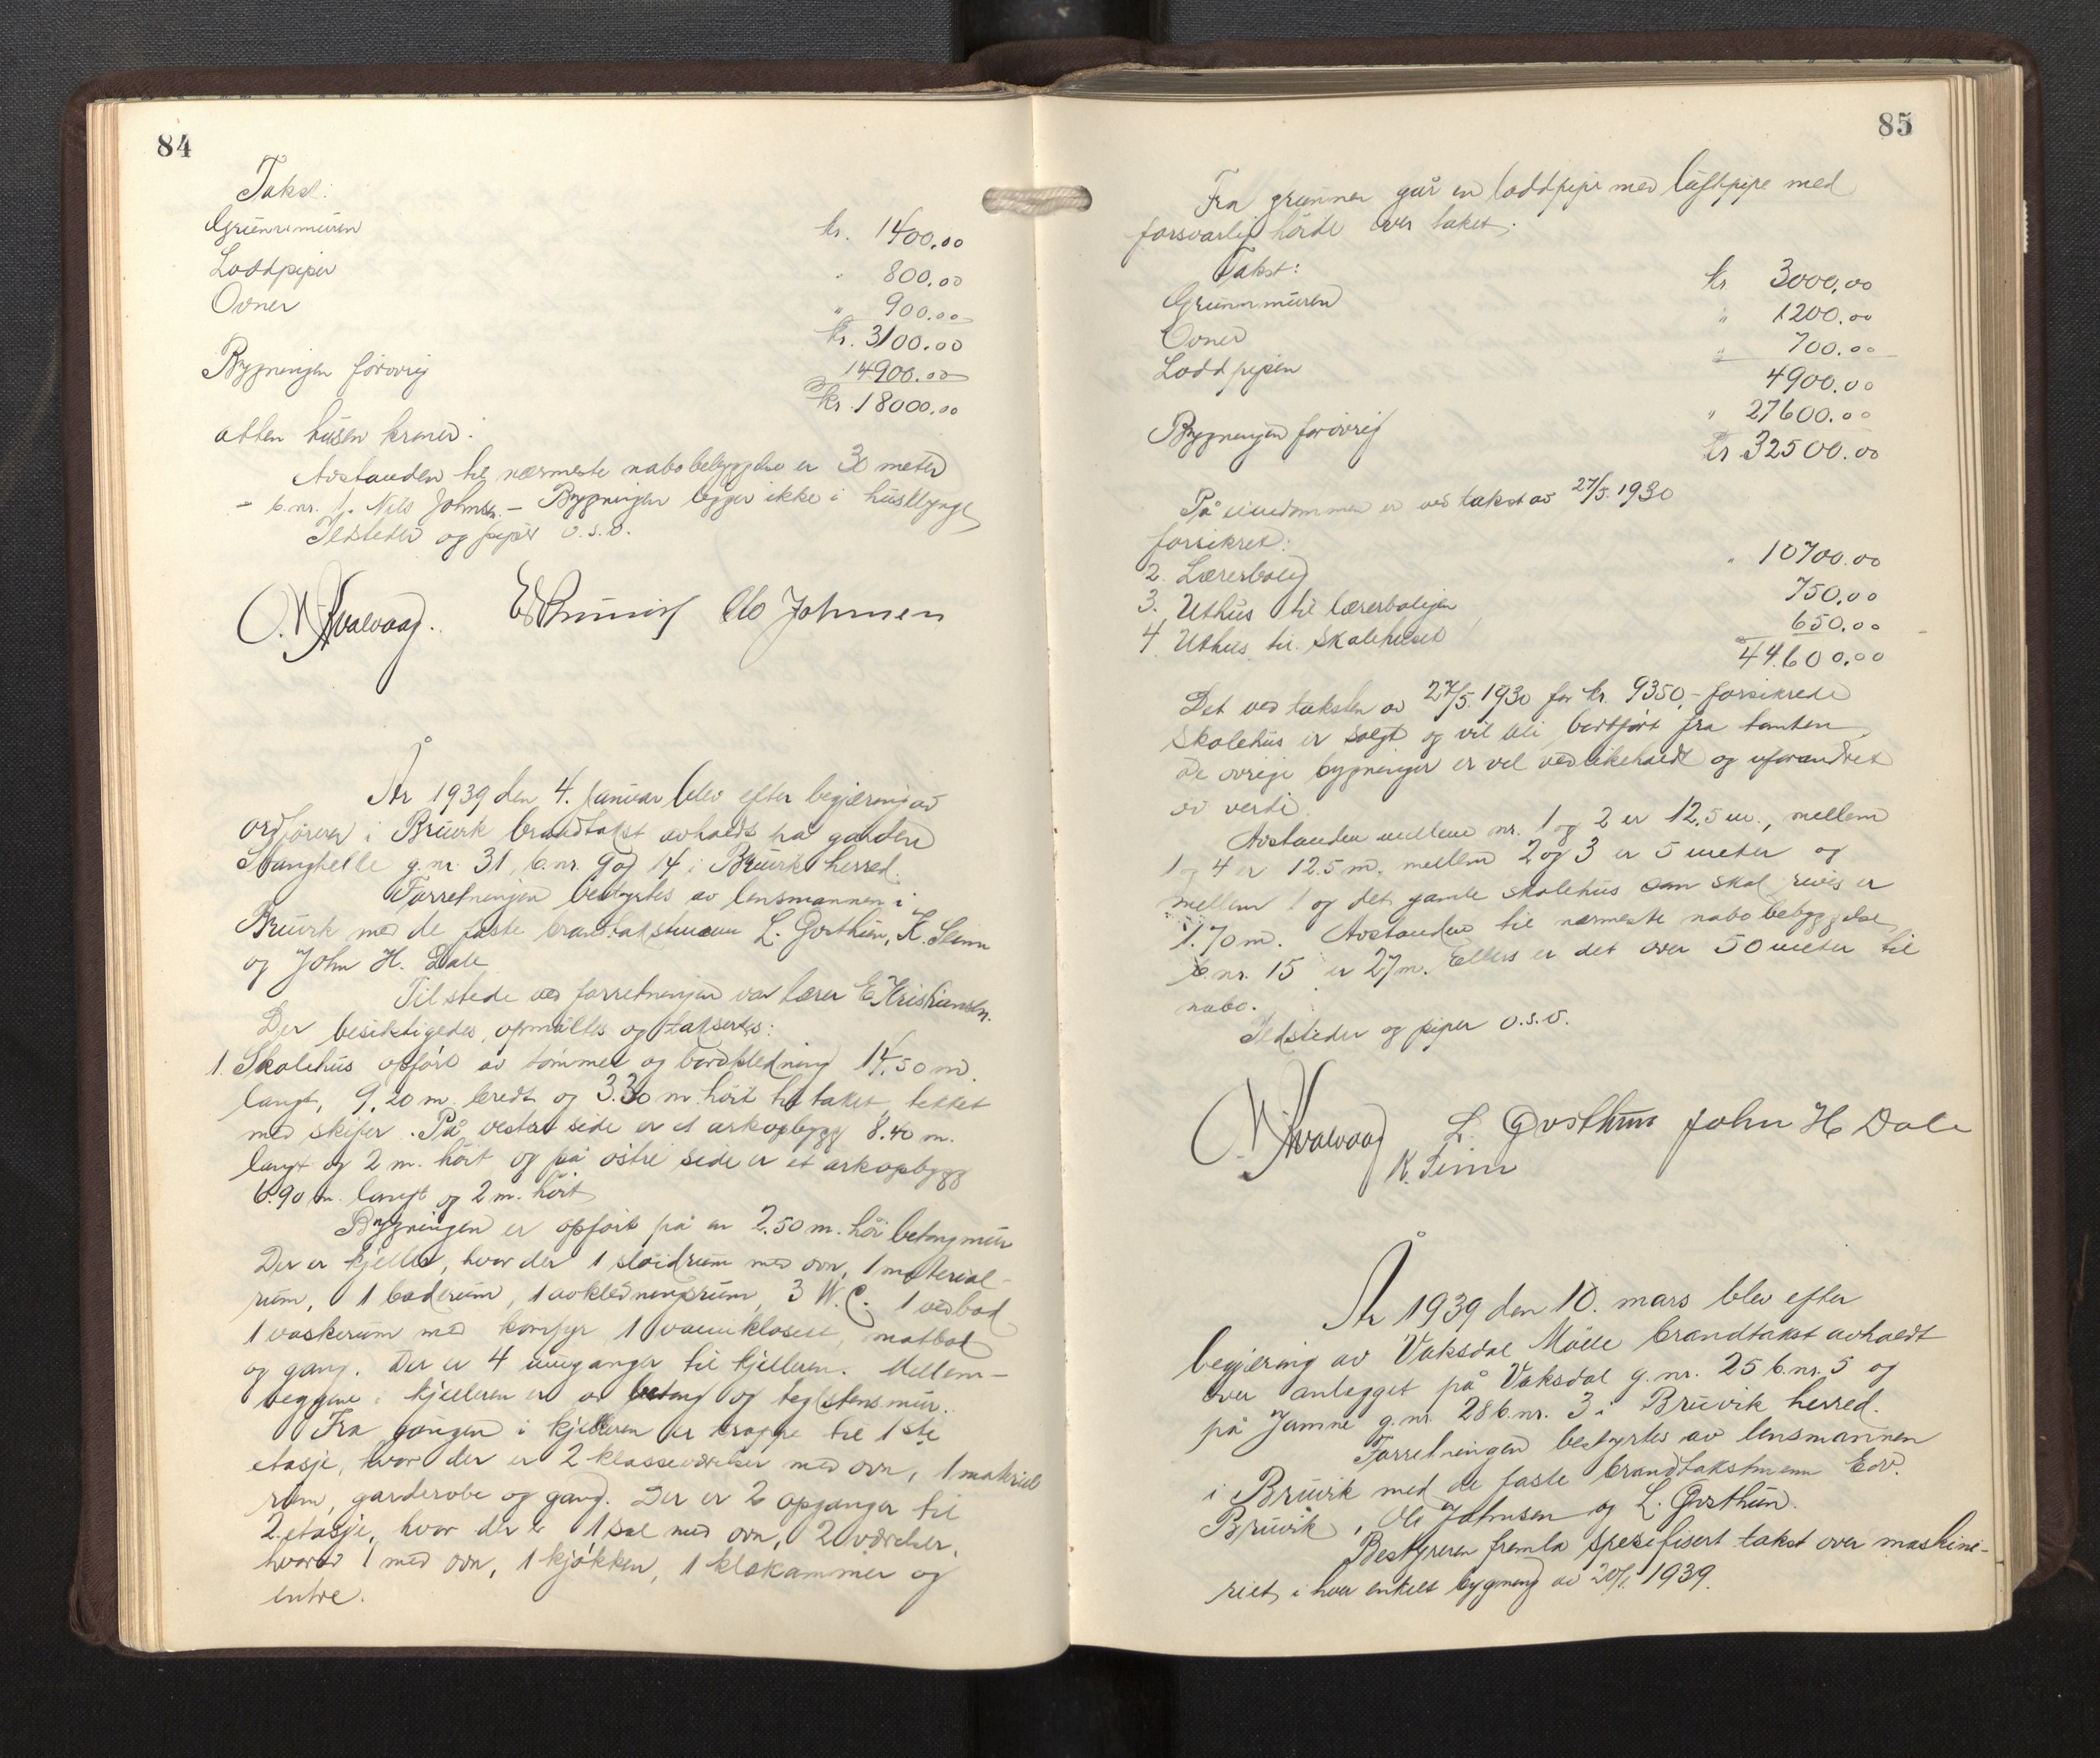 84
Takst:
Grunnmuren kr. 1400.00
Loddpiper " 800.00
Ovner " 900.00
kr. 3100.00
Bygningen forøvrig 14900.00
kr. 18000.00
atten tusen kroner.
Avstanden til nærmeste nabobebyggelse er 30 meter
- b.nr. 1. Nils Johnsen. - Bygningen ligger ikke i husklynge
Ildsteder og piper o.s.v.
O. N. Kvalvaag. Ed Bruvik Ole Johnsen
År 1939 den 4. januar blev efter begjæring av
ordføreren i Bruvik brandtakst avholdt på garden
Stanghelle g.nr. 31, b.nr. 9 og 14 i Bruvik herred.
Forretningen bestyrtes av lensmannen i
Bruvik med de faste brandtakstmenn L. Gosthun, K. Sinn
og John H. Dale
Tilstede ved forretningen var lærer E. Kristiansen.
Der besiktigedes, opmåltes og takserdes:
1. Skolehus opført av tømmer og bordkledning 14.50 m.
langt, 9.20 m. bredt og 3.30 m. höit til taket, tekket
med skifer. På vestre side er et arkopbygg 8.40 m.
langt og 2 m. höit og på östre side er et arkopbygg
6.90 m. langt og 2 m. höit
Bygningen er opført på en 2.50 m. höi betongmur
Der er kjeller, hvor der 1 sløidrum med ovn, 1 material-
rum, 1 baderum, 1 avkledningsrum, 3 W.C. 1 vedbod
1 vaskerum med komfyr, 1 vannklosett, matbod
og gang. Der er 4 innganger til kjelleren. Mellem-
veggene i kjelleren er av betong og teglstensmur.
Fra gangen i kjelleren er trappe til 1ste
etasje, hvor der er 2 klasseværelser med ovn, 1 material
rum, garderobe og gang. Der er 2 opganger til
2. etasje, hvor der er 1 sal med ovn, 2 værelser,
hvorav 1 med ovn, 1 kjøkken, 1 klekammer og
entre.
85
Fra grunnen går en loddpipe med luftpipe med
forsvarlig höide over taket.
Takst:
Grunnmuren kr 3000.00
Ovner " 1200.00
Loddpipen " 700.00
4900.00
Bygningen forøvrig " 27600.00
kr 32500.00
På eiendommen er ved takst av 27/5. 1930
forsikret:
2. Lærerbolig " 10700.00
3. Uthus til lærerboligen 750.00
4. Uthus til skolehuset 650.00
44.600.00
Det ved taksten av 27/5. 1930 for kr. 9350,- forsikrede
skolehus er solgt og vil bli bortført fra tomten
De øvrige bygninger er vel vedlikeholdt og uforandret
av verdi.
Avstanden mellem nr. 1 og 2 er 12.5 m., mellem
1 og 4 er 12.5 m, mellem 2 og 3 er 5 meter og
mellem 1 og det gamle skolehus som skal rives er
1.70 m. Avstanden til nærmeste nabobebyggelse
b.nr. 15 er 27 m. Ellers er det over 50 meter til
nabo.
Ildsteder og piper o.s.v.
O. N. Kvalvaag L. Gosthun John H Dale
K. Sinn
År 1939 den 10. mars blev efter
begjæring av Vaksdal Mølle brandtakst avholdt
over anlegget på Vaksdal g.nr. 25 b.nr. 5 og
på Jamne g.nr. 28 b.nr. 3 i Bruvik herred.
Forretningen bestyrtes av lensmannen
i Bruvik med de faste brandtakstmenn Edv.
Bruvik, Ole Johnsen og L. Gosthun.
Bestyreren fremla spesifisert takst over maskine-
riet i hver enkelt bygning av 1939.